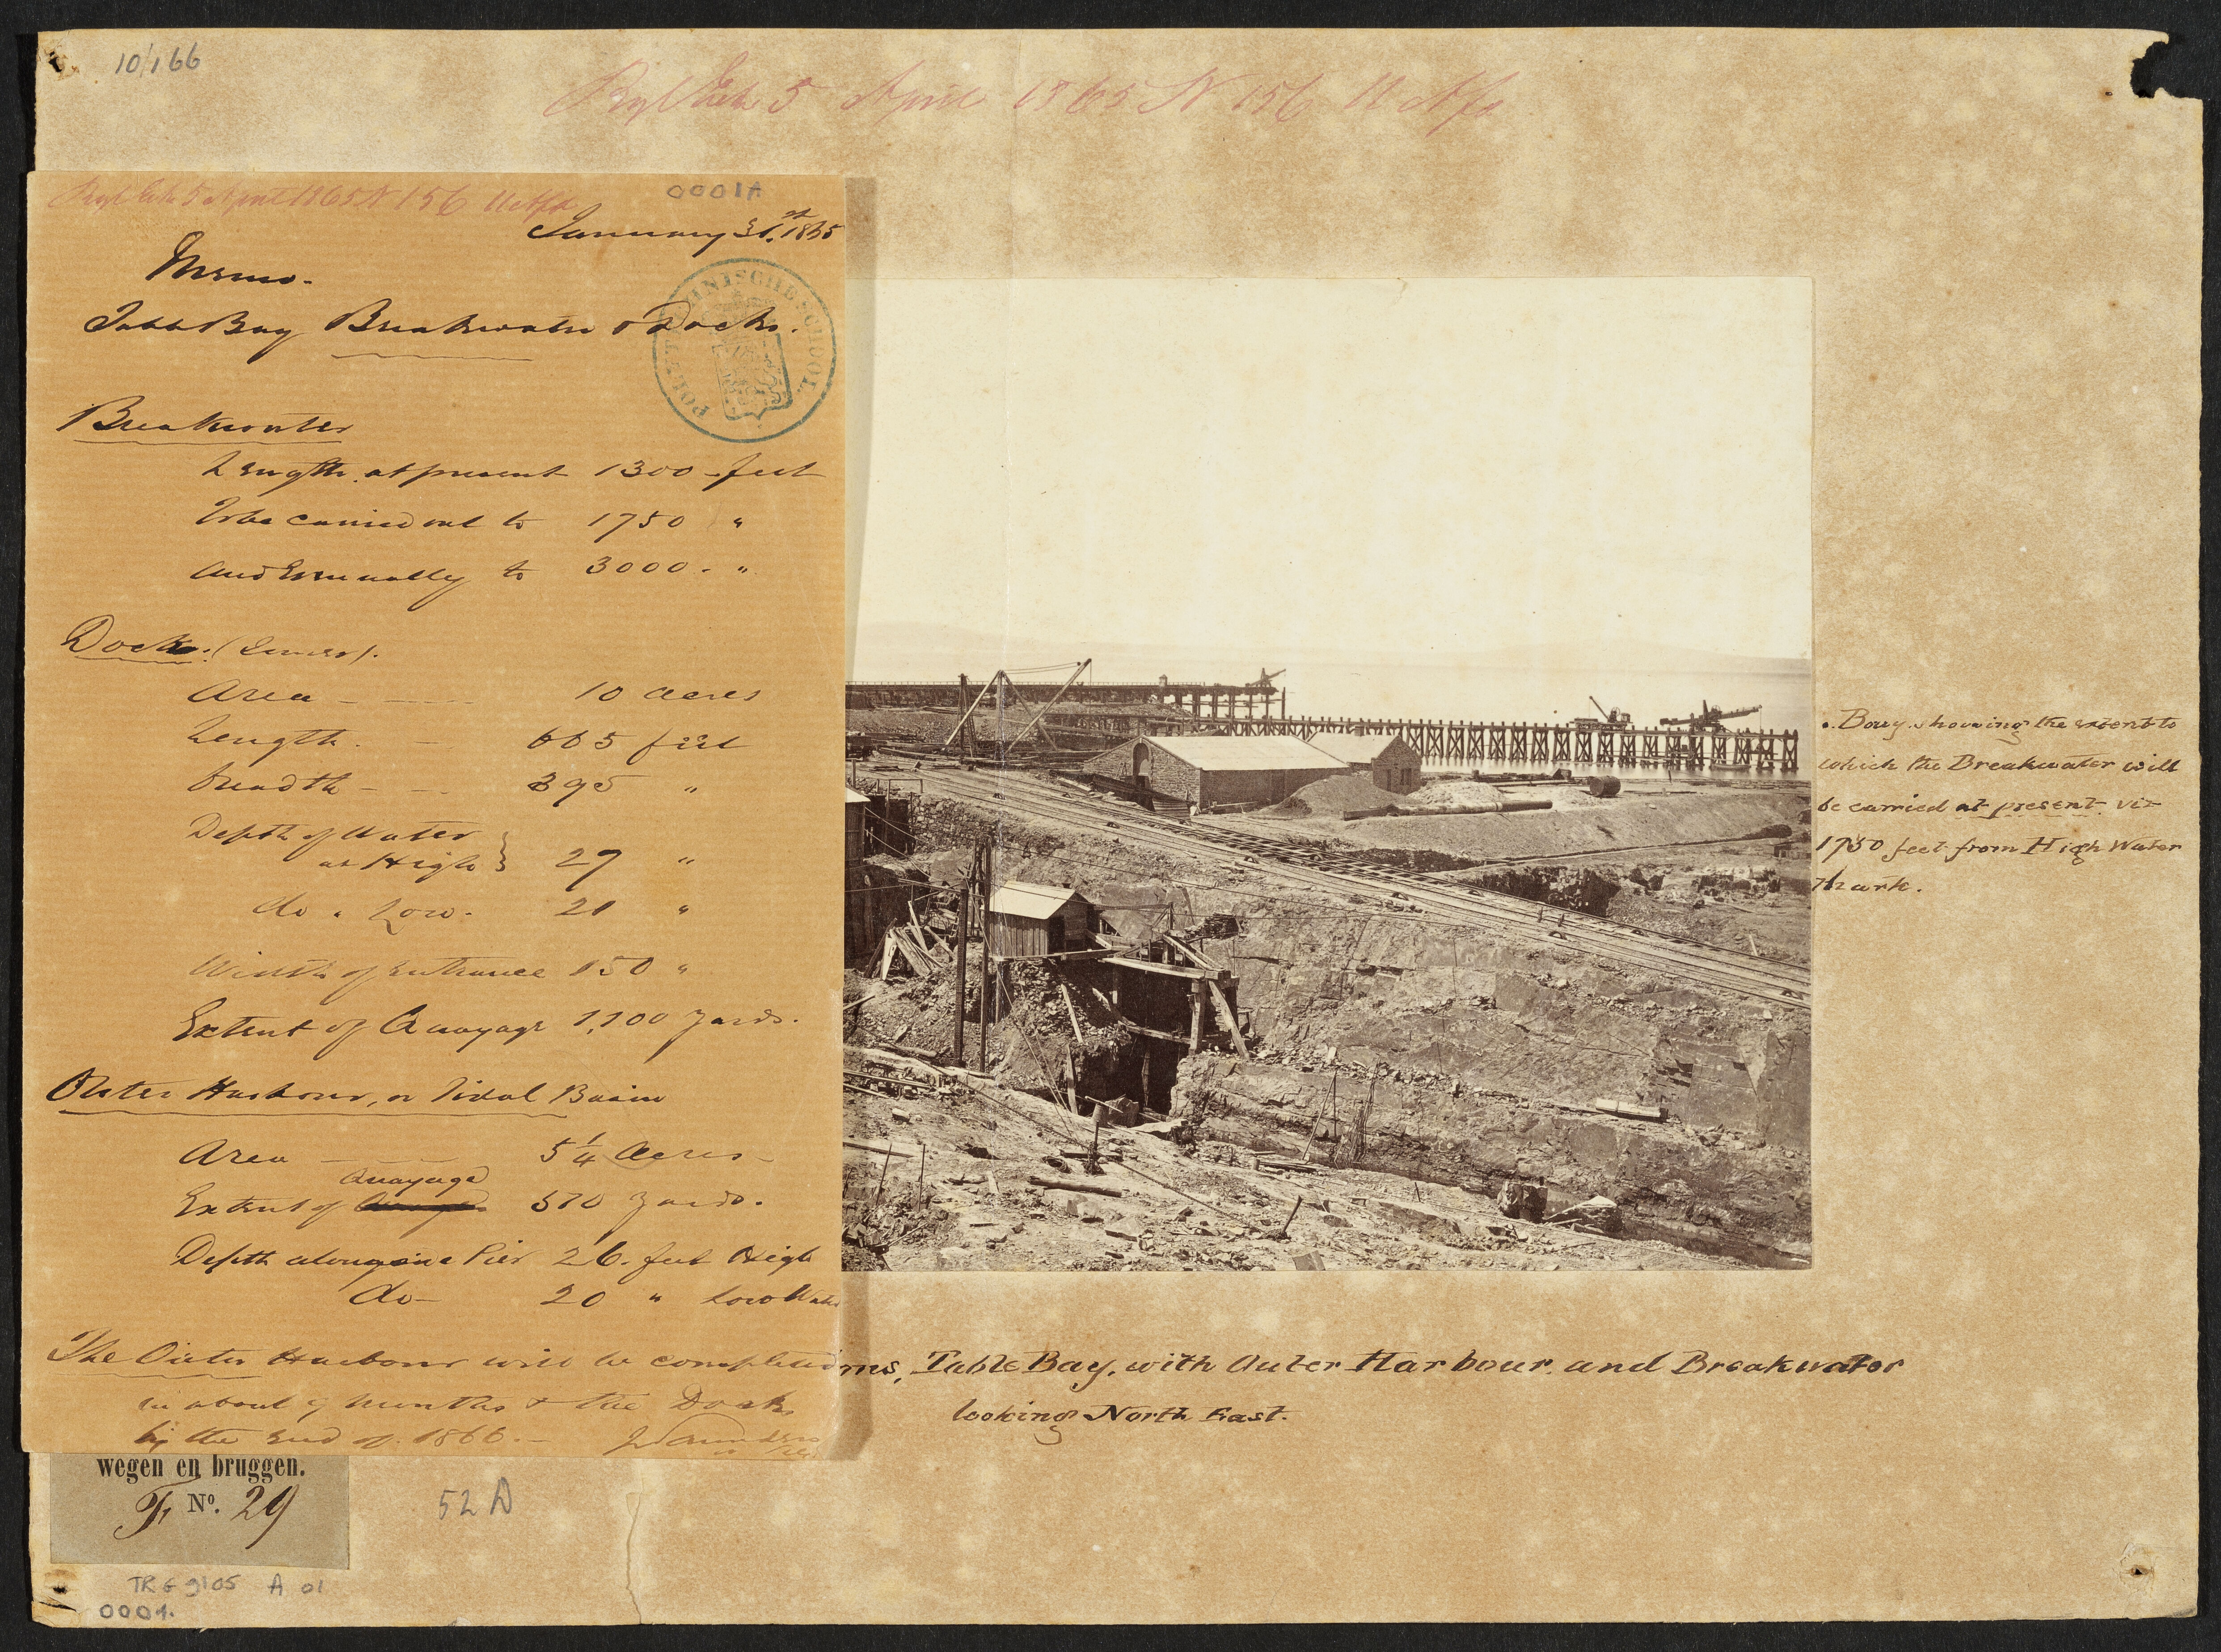 10/166
5 April 1865 N 156
5 April 1865 N 156
0001A
January 31.st 1865
Memo.
Table Bay Breakwater & Docks.
POLYTECHNISCHE SCHOOL
Breakwater
Length at present 1300 feet
To be carried out to 1750 "
and Evenually to 3000 - "
Dock: (Inner).
Area - 10 acres
Length. - 665 feet
Breadth - - 395 "
Depth of Water
at High } 27 "
do " Low. 21 "
Width of entrance 150 "
Extent of Quayage 1,100 yards.
Outer Harbour, or Tidal Basin
Area 5 1/4 Acres -
Quayage
Extent of 510 Yards.
Depth alongside Pier 26. feet High
do - 20 " Low Water
The Outer Harbour will be completed
in about 9 Months & the Docks
by the end of 1866. -
Bay. showing the extent to
which the Breakwater will
be carried at present viz
1750 feet from High Water
Mark.
ms, Table Bay, with Outer Harbour, and Breakwater
looking North East.
wegen en bruggen.
No. 29
52 A
TRG 9105 A 01
0001.